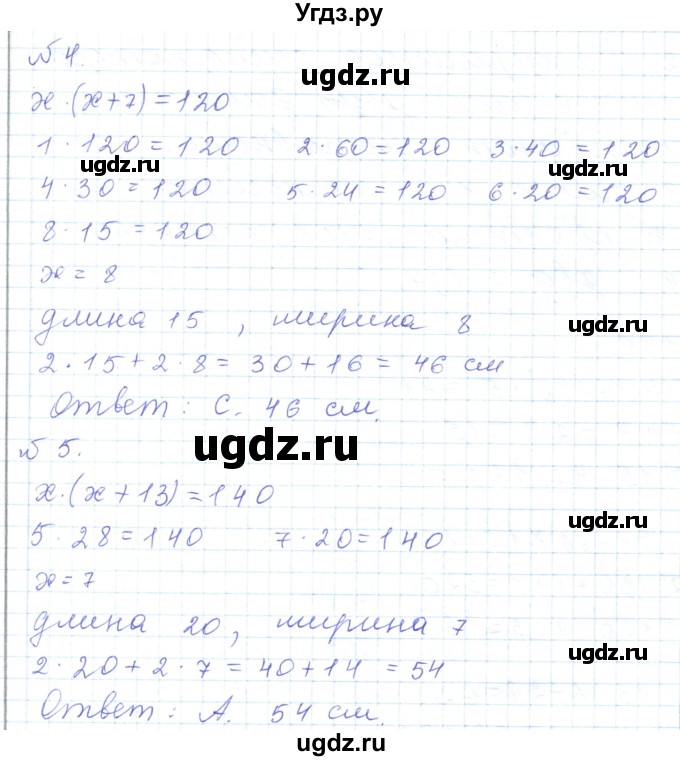 Угдз.ру
№ 4.
ugdz.ru
x·(x+7)=120
1·120=120 2·60=120 3·40=120
ugdz.ru
ugdz.ru
4·30=120 5·24=120 6·20=120
8·15=120
x=8
длина 15, ширина 8
ugdz.ru
2·15+2·8=30+16=46 см
Ответ: С. 46 см.
ugdz.ru
№ 5.
x·(x+13)=140
ugdz.ru
5·28=140 7·20=140
x=7
длина 20, ширина 7
ugdz.ru
2·20+2·7=40+14=54
Ответ: А. 54 см.
ugdz.ru
ugdz.ru